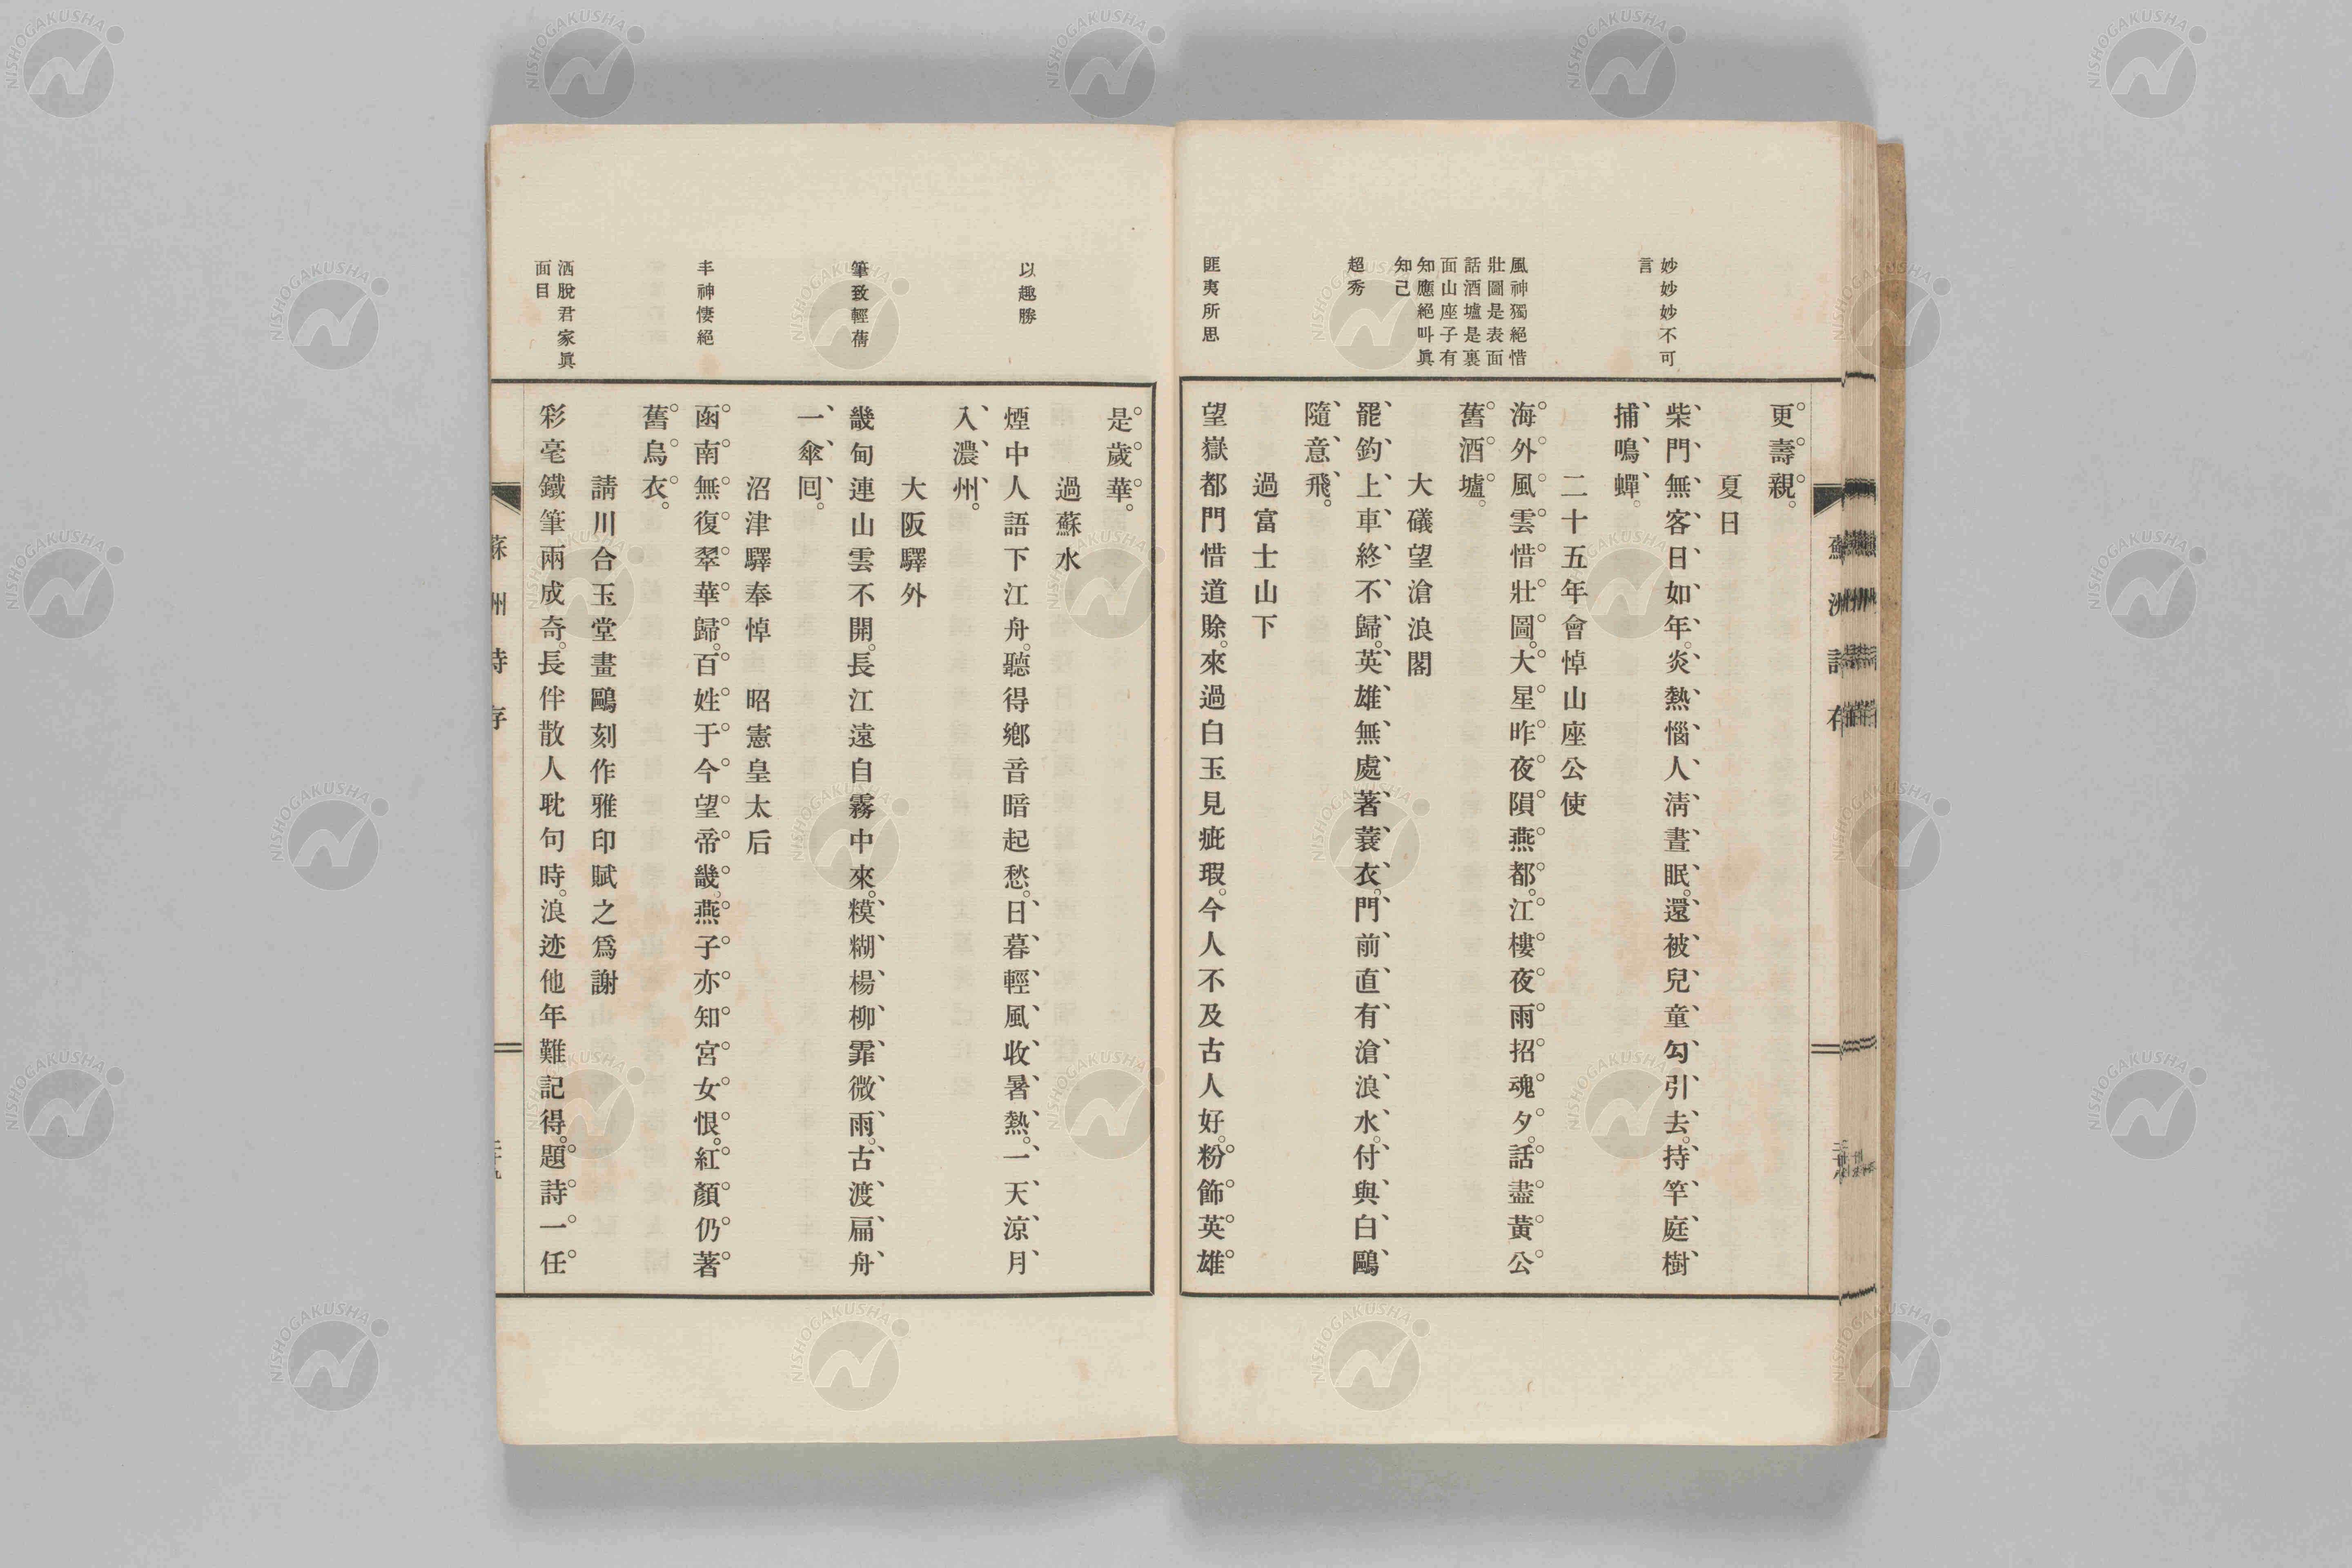 更壽親。
夏日
柴門無客日如年。炎熱惱人淸晝眠。還被兒童勾引去。持竿庭樹
捕鳴蟬。
二十五年會悼山座公使
海外風雲惜壯圖。大星昨夜隕燕都。江樓夜雨招魂夕。話盡黃公
舊酒壚。
大磯望滄浪閣
罷釣上車終不歸。英雄無處著蓑衣。門前直有滄浪水。付與白鷗
隨意飛。
過富士山下
望嶽都門惜道賒。來過白玉見疵瑕。今人不及古人好。粉飾英雄
妙妙妙妙不可
言
風神獨絕惜
壯圖是表面
話酒壚是裏
面山座子有
知應絕叫眞
知己
超秀
匪夷所思
蘇洲詩存
二十八
是歲華。
過蘇水
煙中人語下江舟。聽得鄕音暗起愁。日暮輕風收暑熱。一天涼月
入濃州。
大阪驛外
畿甸連山雲不開。長江遠自霧中來。糢糊楊柳霏微雨。古渡扁舟
一傘回。
沼津驛奉悼 昭憲皇太后
函南無復翠華歸。百姓于今望帝畿。燕子亦知宮女恨。紅顏仍著
舊烏衣。
請川合玉堂畫鷗刻作雅印賦之爲謝
彩毫鐵筆兩成奇。長伴散人耽句時。浪迹他年難記得。題詩一任
以趣勝
筆致輕蒨
丰神悽絕
洒脫君家眞
面目
蘇洲詩存
NISHOGAKUSHA